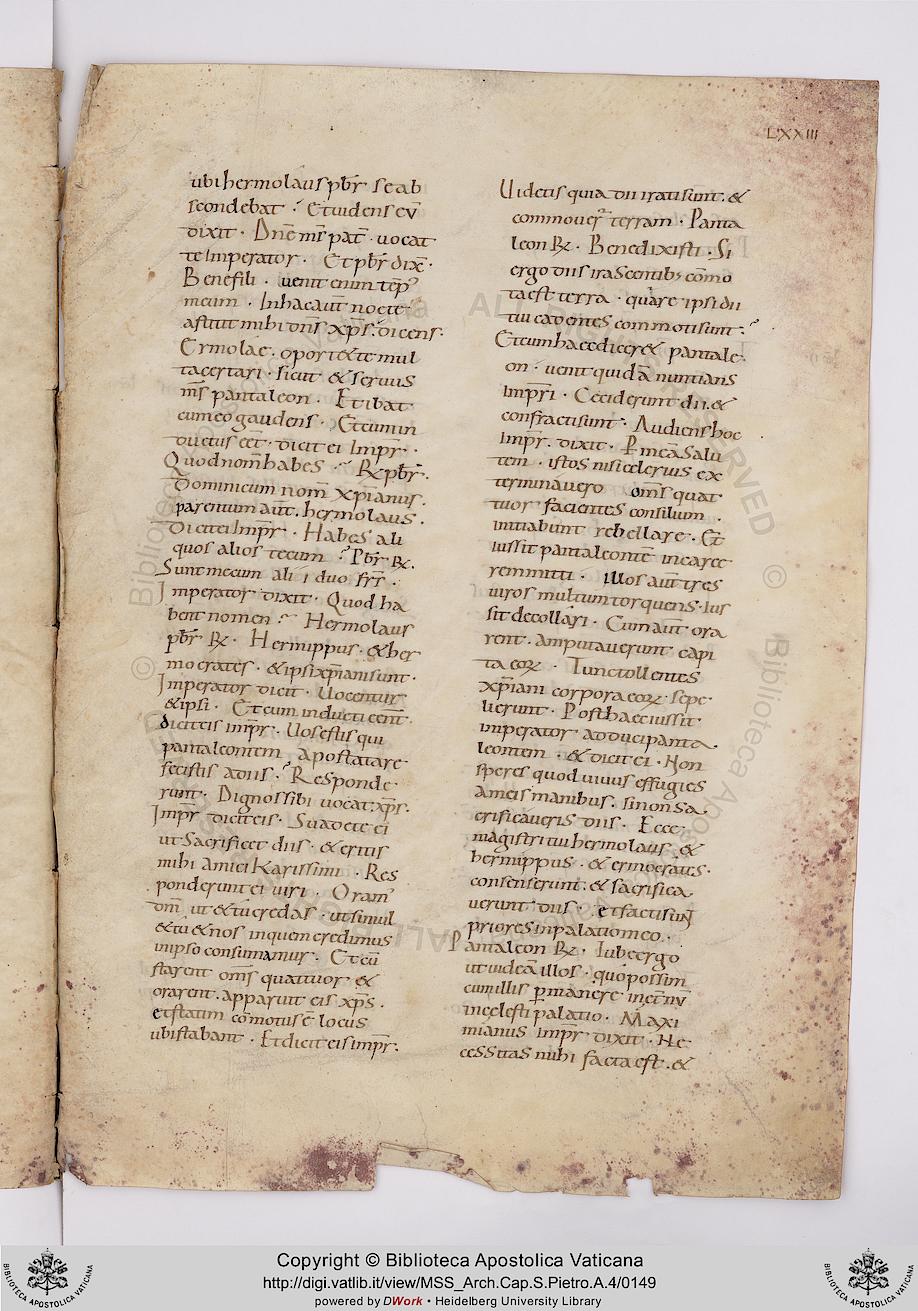 LXXIII
ubi hermolaus pbr̄ se ab
scondebat · Et uidens eū
dixit · Dnē mī pat̄ · uocat
te Imperator · Et pbr̄ dix̄ ·
Bene fili · uenit enim tēp'
meum · In hac aut̄ nocte
astitit mihi dn̄s xp̄s · dicens ·
Ermolae · oport& te mul
ta certari · sicut & seruus
m̄s pantaleon · Et ibat
cum eo gaudens · Et cum in
ductus eēt · dicit ei Impr̄ ·
Quod nom̄ habes · R̄ pbr̄ ·
Dominicum nom̄ xp̄ianus ·
parentum aut̄ · hermolaus ·
Dicit ei Impr̄ · Habes ali
quos alios tecum · Pbr̄ R̄ ·
Sunt mecum alii duo fr̄r̄ ·
Imperator dixit · Quod ha
bent nomen · Hermolaus
pbr̄ R̄ · Hermippus · & her
mocrates · & ipsi xp̄iani sunt ·
Imperator dicit · Uocentur
& ipsi · Et cum inducti eēnt ·
dicit eis impr̄ · Uos estis qui
pantaleontem apostatare
fecistis a diis · Responde
runt · Dignos sibi uocat xp̄s ·
Impr̄ dicit eis · Suadete ei
ut sacrificet diis · & eritis
mihi amici Karissimi · Res
ponderunt ei uiri · Oram'
dm̄ ut & tu credas · ut simul
& tu & nos in quem credimus
in ipso consumamur · Et cū
starent om̄s quattuor &
orarent · apparuit eis xp̄s ·
et statim cōmotus ē locus
ubi stabant · Et dicit eis impr̄ ·
Uidetis quia dii irati sunt · &
commouer terram · Panta
leon R̄ · Benedixisti · Si
ergo diis irascentib; cōmo
ta est terra · quare ipsi dii
tui cadentes commoti sunt ·
Et cum haec dicer& pantale
on · uenit quidā nuntians
impr̄i · Ceciderunt dii · &
confracti sunt · Audiens hoc
impr̄ · dixit · P̄ meā salu
tem · istos nisi celerius ex
terminauero om̄s quat
tuor facientes consilium ·
initiabunt rebellare · Et
iussit pantaleontē in carce
rem mitti · illos aut̄ tres
uiros multum torquens · ius
sit decollari · Cum aut̄ ora
rent · amputauerunt capi
ta eor̄ · Tunc tollentes
xp̄iani corpora eor̄ sepe
lierunt · Post haec iussit
imperator adduci panta
leontem · & dicit ei · Non
speres quod uiuus effugies
a meis manibus · si non sa
crificaueris diis · Ecce
magistri tui hermolaus · &
hermippus · & ermocrates ·
consenserunt · & sacrifica
uerunt diis · et facti sunt
priores in palatio meo ·
Pantaleon R̄ · Iube ergo
ut uideā illos · quo possim
cum illis p̄manere in et̄nū
in celesti palatio · Maxi
mianus impr̄ dixit · Ne
cessitas mihi facta est · &
Copyright © Biblioteca Apostolica Vaticana
http://digi.vatlib.it/view/MSS_Arch.Cap.S.Pietro.A.4/0149
powered by DWork • Heidelberg University Library
BIBLIOTECA APOSTOLICA VATICANA
BIBLIOTECA APOSTOLICA VATICANA